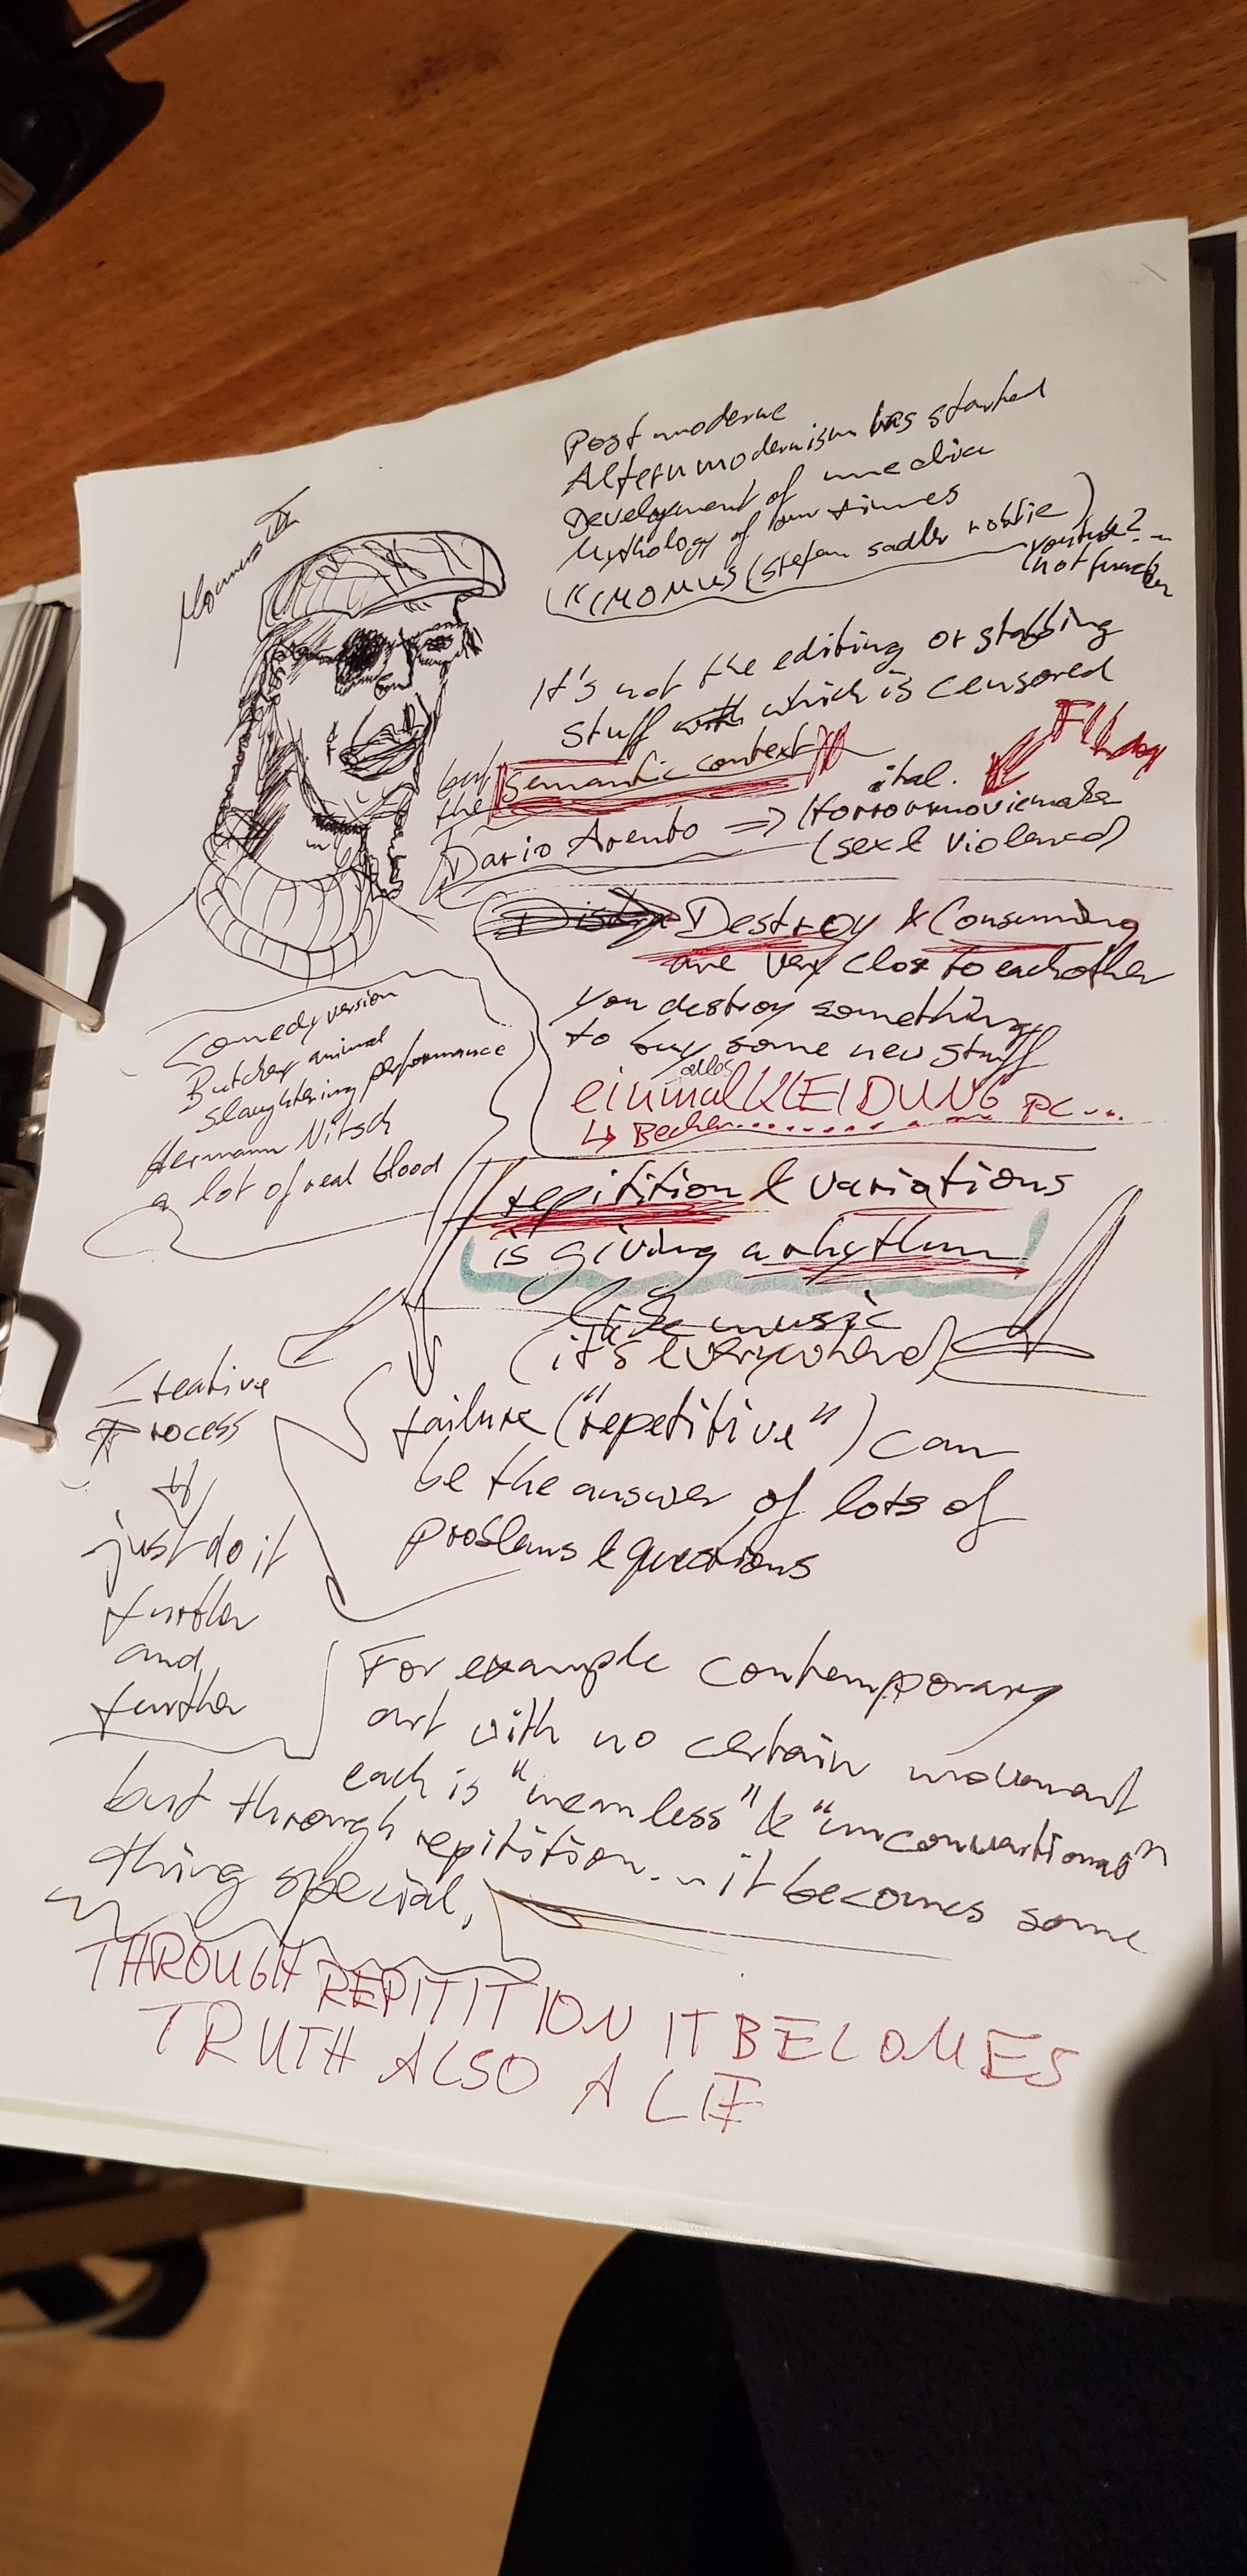 Momus
Postmoderne
Altermodernism has started
Development of media
Mythology of our times
MOMUS (stefan sadler
youtube?
It's not the editing or stabbing
stuff which is censored
but
the semantic context
ital.
Dario Arento => Horrormoviemaker
(sex & violence)
Destroy & Consuming
are very close to eachother
you destroy something
to buy some new stuff
alles
einmal KLEIDUNG PC...
↳ Becher...........
Comedy version
Butcher animal
slaughtering performance
Hermann Nitsch
a lot of real blood
repitition & variations
is giving a rhythm
like music
(it's everywhere)
Creative
Process
just do it
further
and
further
failure ("repetitive") can
be the answer of lots of
problems & questions
For example contemporary
art with no certain movement
each is "meanless" & "unconventional"
but through repitition... it becomes some
thing special,
THROUGH REPITITION IT BECOMES
TRUTH ALSO A LIE